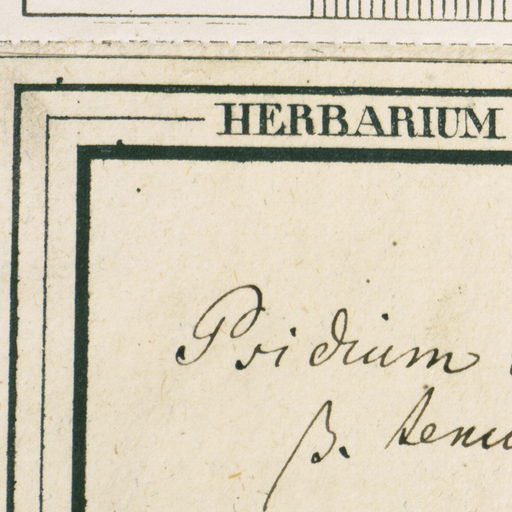 HERBARIUM
Psidium
β. tenu